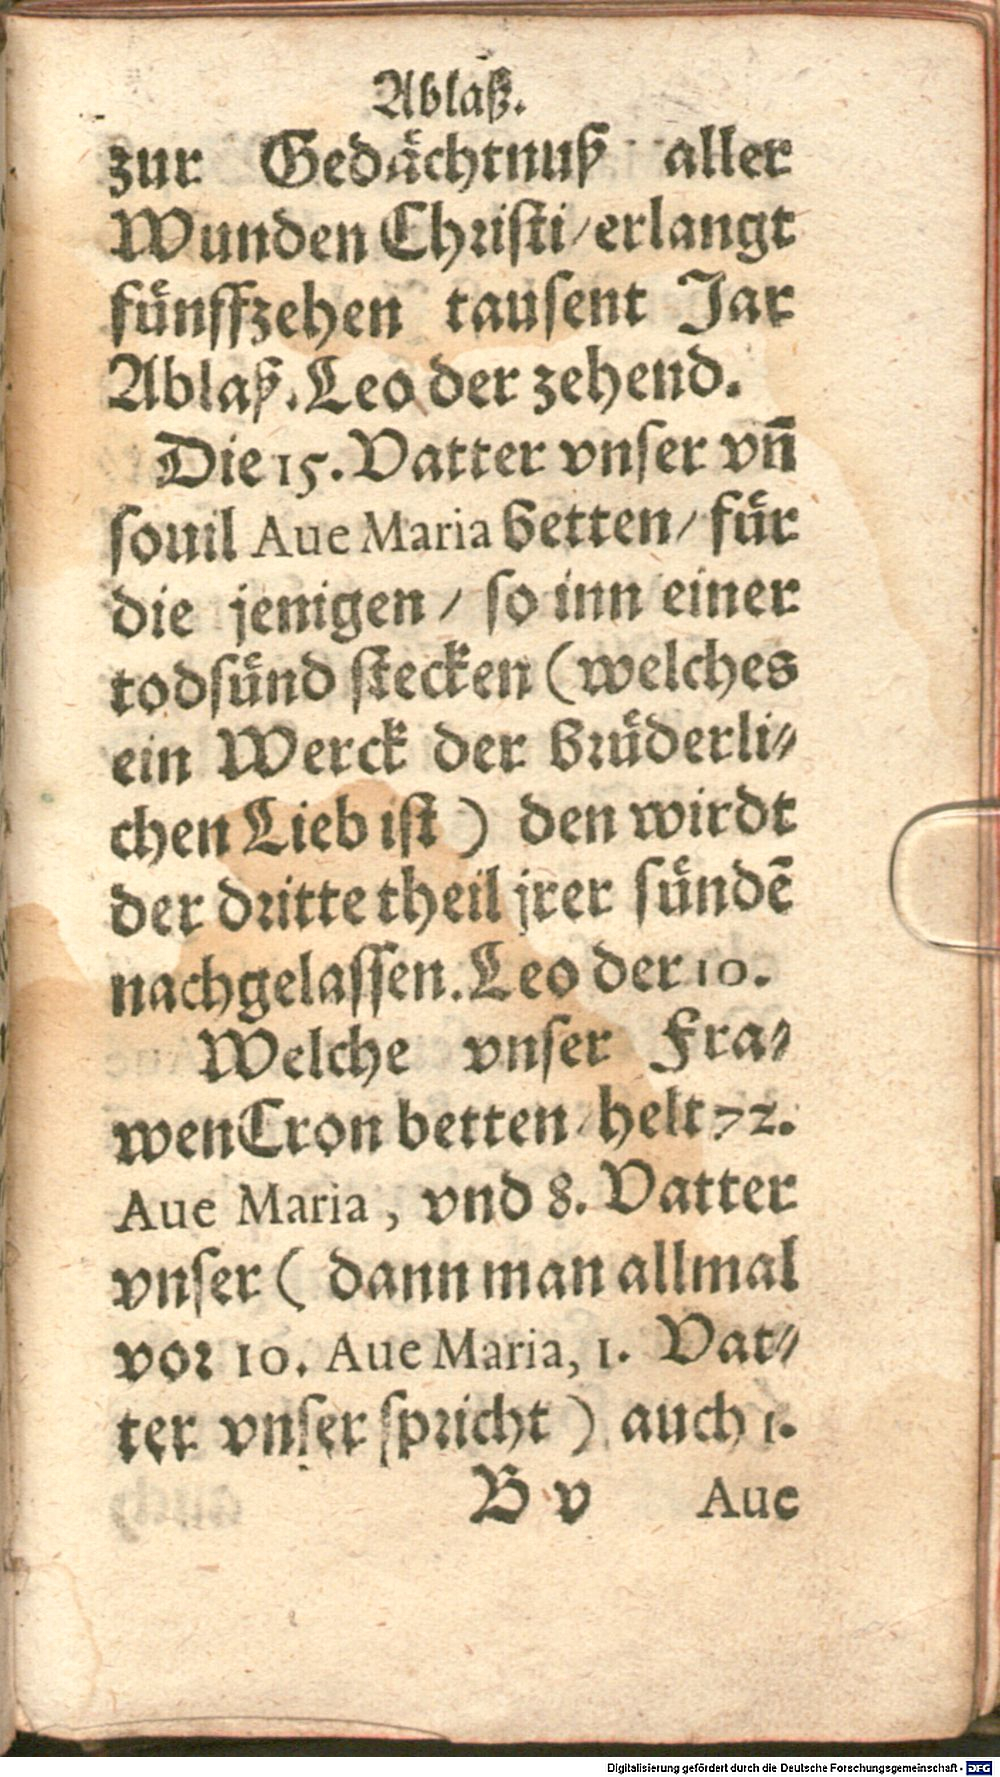 Ablaß.
zur Gedächtnuß aller
Wunden Christi/erlangt
fünffzehen tausent Jar
Ablaß. Leo der zehend.
Die 15. Vatter vnser vn̄
souil Aue Maria betten/ für
die jenigen / so inn einer
todsünd stecken (welches
ein Werck der brüderli⸗
chen Lieb ist) den wirdt
der dritte theil jrer sündē
nachgelassen. Leo der 10.
Welche vnser Fra⸗
wen Cron betten/helt 72.
Aue Maria, vnd 8. Vatter
vnser ( dann man allmal
vor 10. Aue Maria, 1. Vat⸗
ter vnser spricht ) auch 1.
B v Aue
Digitalisierung gefördert durch die Deutsche Forschungsgemeinschaft - DFG